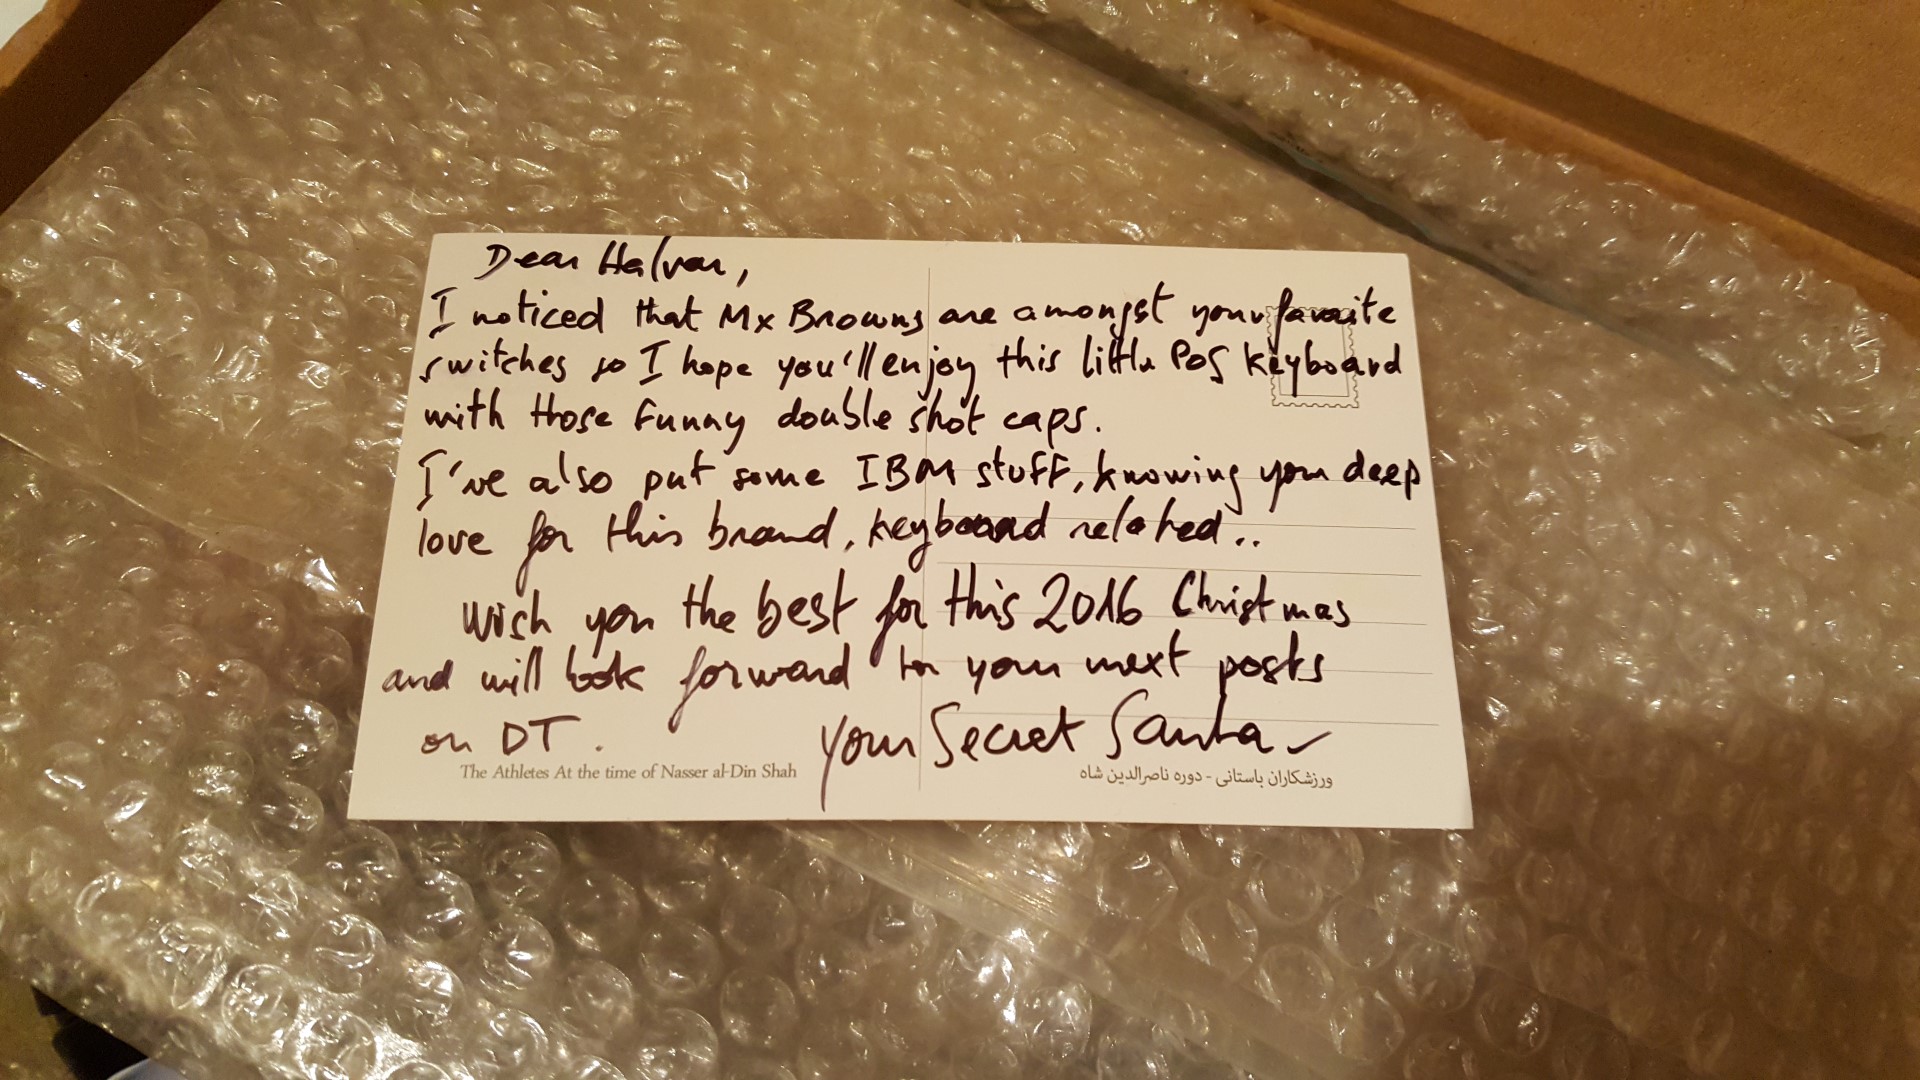 Dear Halvar,
I noticed that Mx Browns are amongst your favorite
switches so I hope you'll enjoy this little PoS keyboard
with those funny double shot caps.
I've also put some IBM stuff, knowing your deep
love for this brand, keyboard related..
Wish you the best for this 2016 Christmas
and will look forward for your next posts
on DT.
Your Secret Santa
The Athletes At the time of Nasser al-Din Shah
ورزشکاران باستانی - دوره ناصرالدین شاه